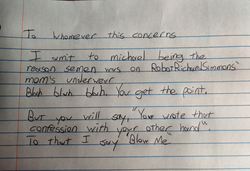 To whomever this concerns
I wmit to michael being the
reason semen was on RobertRichardSimmons'
mom's underwear
Bluh bluh bluh. You get the point.
But you will say, "You wrote that
confession with your other hand".
To that I say "Blow Me"